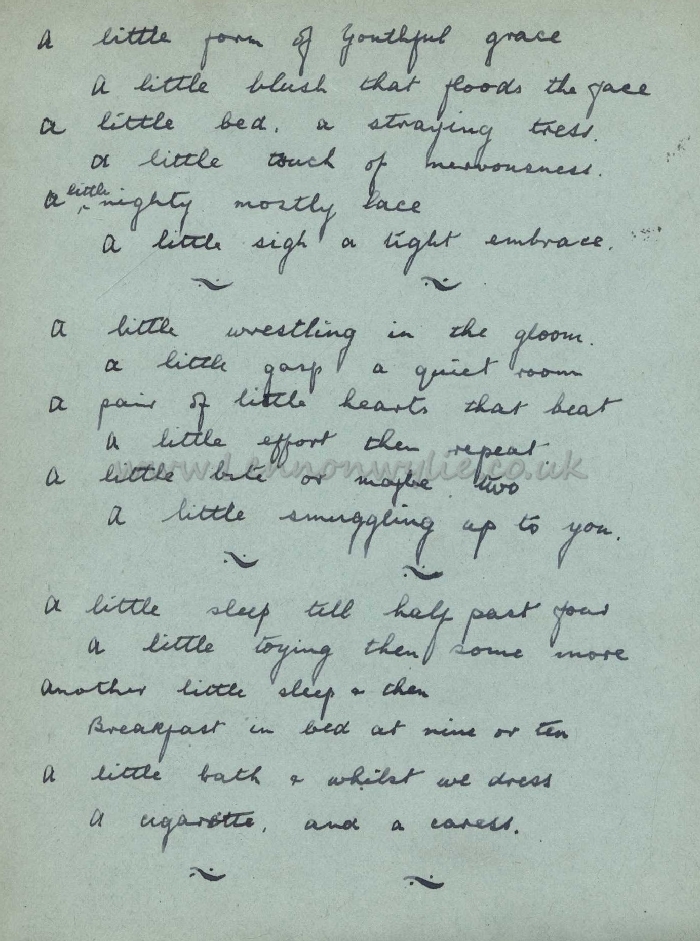 A little form of Youthful grace
A little blush that floods the face
A little bed, a straying tress.
A little touch of nervousness.
A little nighty mostly lace
A little sigh a tight embrace.
A little wrestling in the gloom.
a little gasp a quiet room
A pair of little hearts that beat
A little effort then repeat.
www.Lennonwylie.co.uk
A little bite or maybe two
A little smuggling up to you.
A little sleep till half past four
A little toying then some more
Another little sleep & then
Breakfast in bed at nine or ten
A little bath & whilst we dress
A cigarette, and a caress.